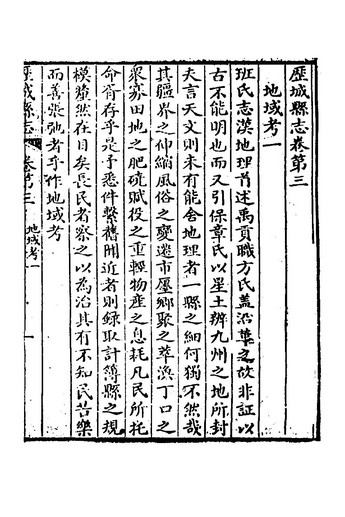 歷城縣志卷第三
地域考一
班氏志漢地理首述禹貢職方氏蓋沿革之故非証以
古不能明也而又引保章氏以星土辨九州之地所封
夫言天文則未有能舍地理者一縣之細何獨不然哉
其疆界之伸縮風俗之變遷市廛鄉聚之萃渙丁口之
眾寡田地之肥磽賦役之重輕物產之息耗凡民所托
命胥存乎是予悉件繫舊聞近者則錄取計簿縣之規
模犛然在目矣長民者察之以為治其有不知民苦樂
而善張弛者乎作地域考
歷城縣志
卷第三
地域考一
一